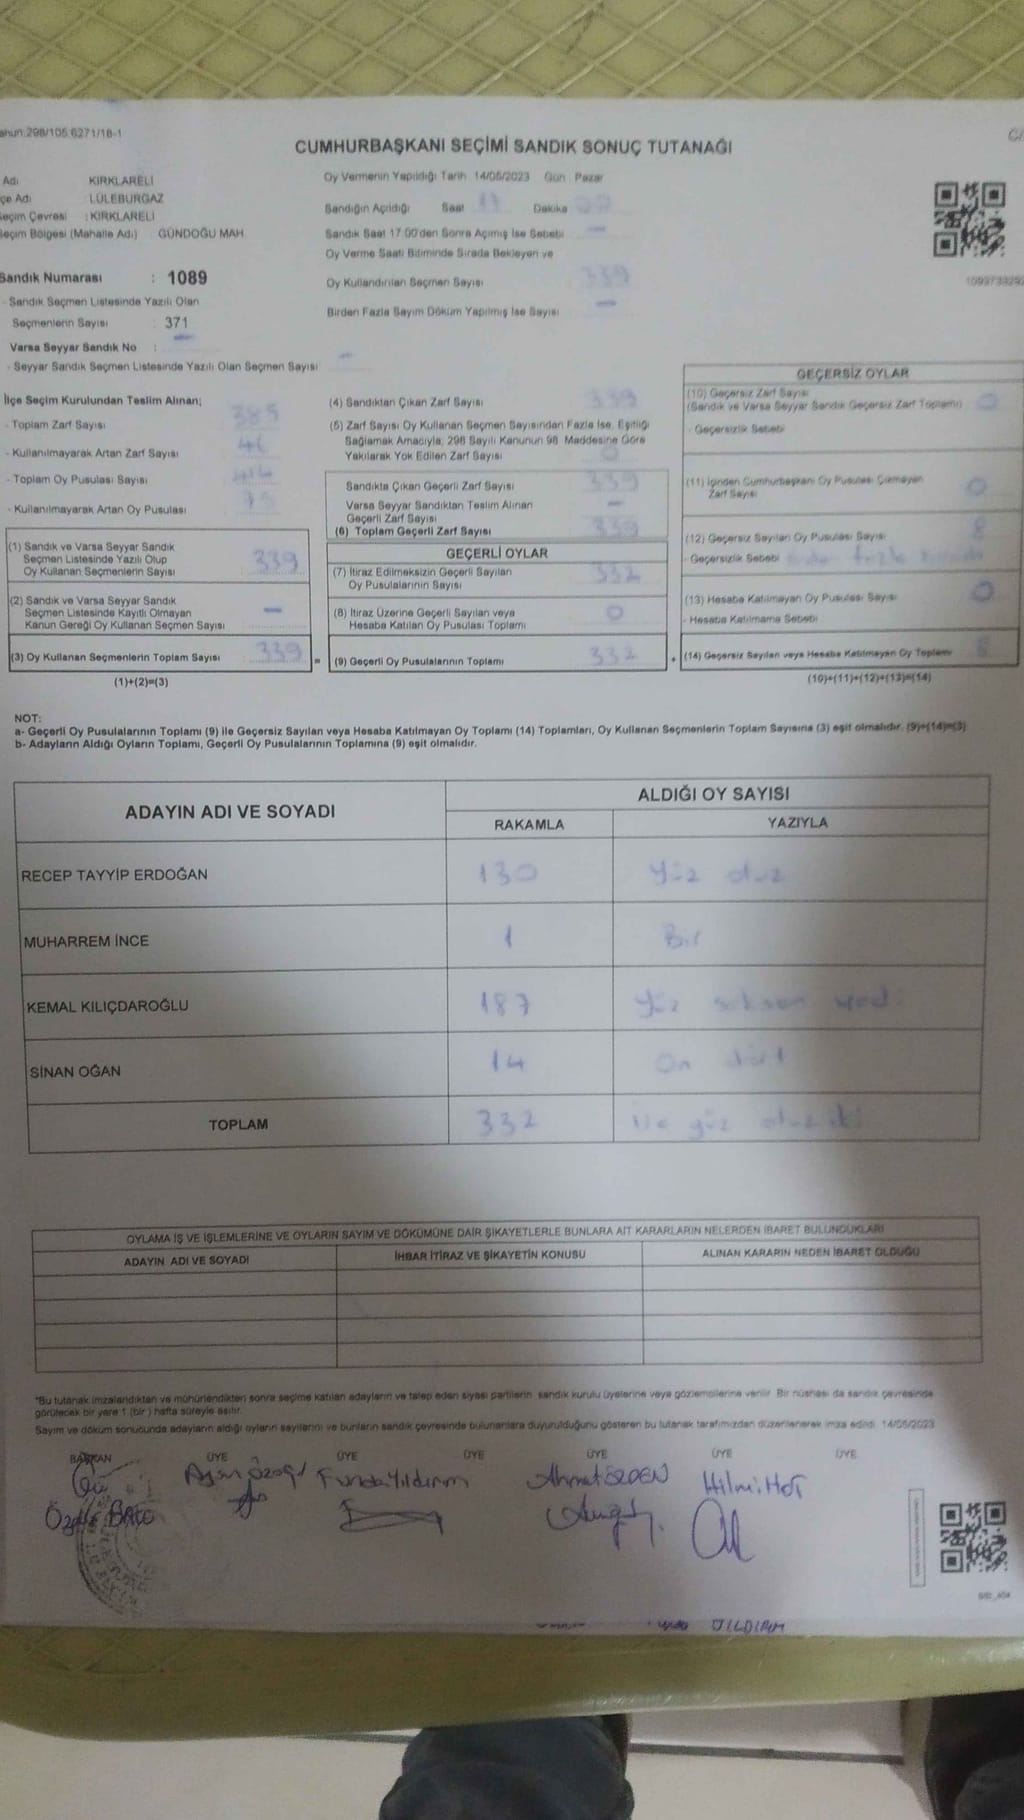 CUMHURBAŞKANI SEÇİMİ SANDIK SONUÇ TUTANAĞI
Adı KIRKLARELİ
LÜLEBURGAZ
Seçim Çevresi : KIRKLARELİ
Seçim Bölgesi (Mahalle Adı) GÜNDOĞU MAH.
Sandık Numarası : 1089
- Sandık Seçmen Listesinde Yazılı Olan
Seçmenlerin Sayısı : 371
Varsa Seyyar Sandık No : -
- Seyyar Sandık Seçmen Listesinde Yazılı Olan Seçmen Sayısı -
Oy Vermenin Yapıldığı Tarih 14/05/2023 Gün : Pazar
Sandığın Açıldığı Saat 17 Dakika 00
Sandık Saat 17:00'den Sonra Açımış İse Sebebi -
Oy Verme Saati Bitiminde Sırada Bekleyen ve
Oy Kullandırılan Seçmen Sayısı 339
Birden Fazla Sayım Döküm Yapılmış İse Sayısı -
İlçe Seçim Kurulundan Teslim Alınan;
- Toplam Zarf Sayısı 385
- Kullanılmayarak Artan Zarf Sayısı 46
- Toplam Oy Pusulası Sayısı 414
- Kullanılmayarak Artan Oy Pusulası 75
(1) Sandık ve Varsa Seyyar Sandık
Seçmen Listesinde Yazılı Olup
Oy Kullanan Seçmenlerin Sayısı 339
(2) Sandık ve Varsa Seyyar Sandık
Seçmen Listesinde Kayıtlı Olmayan
Kanun Gereği Oy Kullanan Seçmen Sayısı -
(3) Oy Kullanan Seçmenlerin Toplam Sayısı 339 =
(1)+(2)=(3)
(4) Sandıktan Çıkan Zarf Sayısı 339
(5) Zarf Sayısı Oy Kullanan Seçmen Sayısından Fazla İse, Eşitliği
Sağlamak Amacıyla, 298 Sayılı Kanunun 98. Maddesine Göre
Yakılarak Yok Edilen Zarf Sayısı 0
Sandıkta Çıkan Geçerli Zarf Sayısı 339
Varsa Seyyar Sandıktan Teslim Alınan
Geçerli Zarf Sayısı -
(6) Toplam Geçerli Zarf Sayısı 339
GEÇERLİ OYLAR
(7) İtiraz Edilmeksizin Geçerli Sayılan
Oy Pusulalarının Sayısı 332
(8) İtiraz Üzerine Geçerli Sayılan veya
Hesaba Katılan Oy Pusulası Toplamı 0
(9) Geçerli Oy Pusulalarının Toplamı 332 +
GEÇERSİZ OYLAR
(10) Geçersiz Zarf Sayısı
(Sandık ve Varsa Seyyar Sandık Geçersiz Zarf Toplamı) 0
- Geçersizlik Sebebi
(11) İçinden Cumhurbaşkanı Oy Pusulası Çıkmayan
Zarf Sayısı 0
(12) Geçersiz Sayılan Oy Pusulası Sayısı 8
- Geçersizlik Sebebi fazla
(13) Hesaba Katılmayan Oy Pusulası Sayısı 0
- Hesaba Katılmama Sebebi
(14) Geçersiz Sayılan veya Hesaba Katılmayan Oy Toplamı 8
(10)+(11)+(12)+(13)=(14)
NOT:
a- Geçerli Oy Pusulalarının Toplamı (9) ile Geçersiz Sayılan veya Hesaba Katılmayan Oy Toplamı (14) Toplamları, Oy Kullanan Seçmenlerin Toplam Sayısına (3) eşit olmalıdır. (9)+(14)=(3)
b- Adayların Aldığı Oyların Toplamı, Geçerli Oy Pusulalarının Toplamına (9) eşit olmalıdır.
ADAYIN ADI VE SOYADI
ALDIĞI OY SAYISI
RAKAMLA YAZIYLA
RECEP TAYYİP ERDOĞAN 130 yüz otuz
MUHARREM İNCE 1 Bir
KEMAL KILIÇDAROĞLU 187 yüz seksen yedi
SİNAN OĞAN 14 On dört
TOPLAM 332 üç yüz otuz iki
OYLAMA İŞ VE İŞLEMLERİNE VE OYLARIN SAYIM VE DÖKÜMÜNE DAİR ŞİKAYETLERLE BUNLARA AİT KARARLARIN NELERDEN İBARET BULUNDUKLARI
ADAYIN ADI VE SOYADI İHBAR İTİRAZ VE ŞİKAYETİN KONUSU ALINAN KARARIN NEDEN İBARET OLDUĞU
*Bu tutanak imzalandıktan ve mühürlendikten sonra seçime katılan adayların ve talep eden siyasi partilerin sandık kurulu üyelerine veya gözlemcilerine verilir. Bir nüshası da sandık çevresinde
görülecek bir yere 1 (bir) hafta süreyle asılır.
Sayım ve döküm sonucunda adayların aldığı oyların sayılarını ve bunların sandık çevresinde bulunanlara duyurulduğunu gösteren bu tutanak tarafımızdan düzenlenerek imza edildi. 14/05/2023
BAŞKAN ÜYE ÜYE ÜYE ÜYE ÜYE ÜYE
Funda Yıldırım Ahmet ÖZDEN Hilmi
YILDIRIM